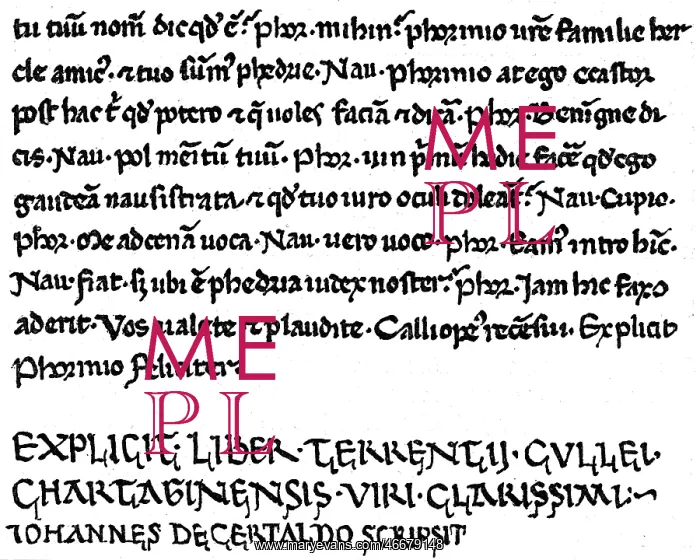 tu tuū nom̄ dic qd' ē? phor. mihin? phormio ur̄e familie her
cle amic⁹. ⁊ tuo sūm⁹ phedrie. Nau. phormio at ego ecastor
post hac t̄ qd' potero ⁊ q̄ uoles faciā ⁊ dicā. phor. Benigne di
cis. Nau. pol meītū tuū. phor. uin pͥmū hodie facē qd' ego
gaudeā nausistrata ⁊ qd' tuo uiro oculi doleāt? Nau. Cupio.
phor. Me ad cenā uoca. Nau. uero uoco. phor. eam⁹ intro hīc.
Nau. fiat. sꝫ ubi ē phedria iudex noster? phor. Iam hic faxo
aderit. Vos ualete ⁊ plaudite. Calliopi⁹ recēsui. Explicit
Phormio feliciter.
ME
PL
ME
PL
EXPLICIT. LIBER. TERRENTIJ. CVLLEI.
CHARTAGINENSIS. VIRI. CLARISSIMI:~
IOHANNES DECERTALDO SCRIPSIT
www.maryevans.com/46679148